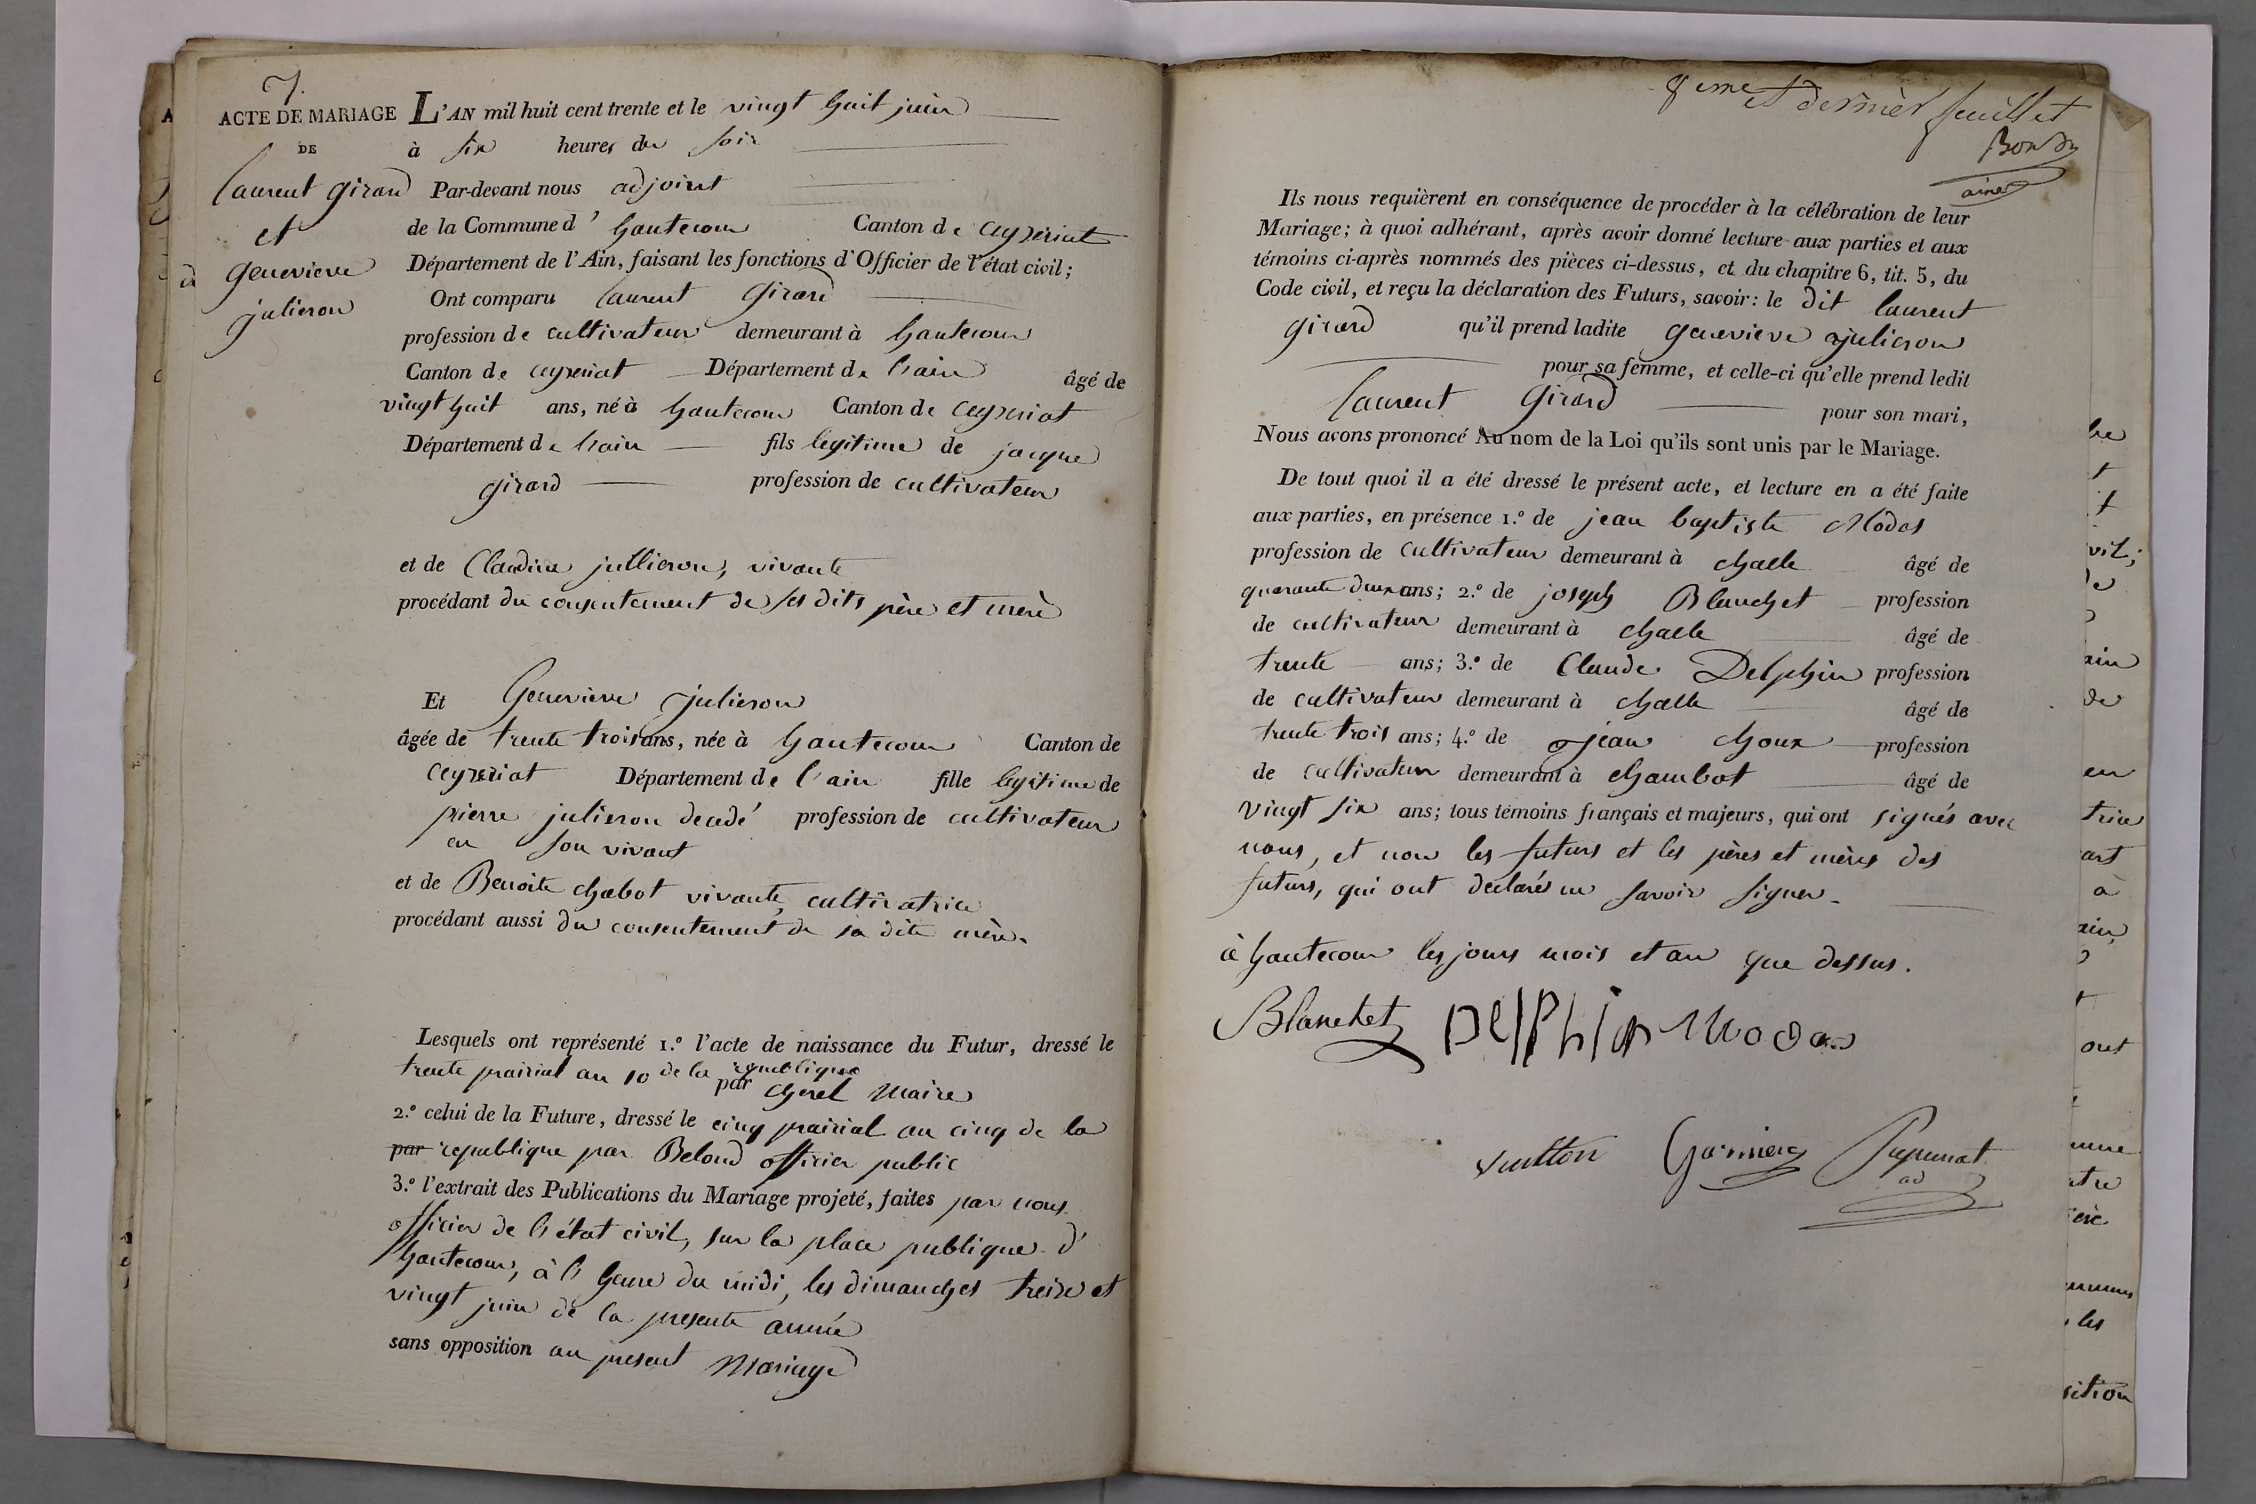 7.
ACTE DE MARIAGE
DE
laurent girard
et
genevieve
julieron
L'AN mil huit cent trente et le vingt huit juin
à six heures du soir
Par-devant nous adjoint
de la Commune d' hautecour Canton de ceyzeriat
Département de l'Ain, faisant les fonctions d'Officier de l'état civil;
Ont comparu laurent Girard
profession de cultivateur demeurant à hautecour
Canton de ceyzeriat Département de l'ain âgé de
vingt huit ans, né à hautecour Canton de ceyzeriat
Département de l'ain fils legitime de jacque
girard profession de cultivateur
et de Claudine jullieron, vivante
procédant du consentement de ses dits père et mère
Et Genevieve julieron
âgée de trente trois ans, née à hautecour Canton de
ceyzeriat Département de l'ain fille legitime de
pierre julieron decedé profession de cultivateur
en son vivant
et de Benoite chabot vivante, cultivatrice
procédant aussi du consentement de sa dite mère.
Lesquels ont représenté 1.º l'acte de naissance du Futur, dressé le
trente prairial an 10 de la republique
par cherel maire
2.º celui de la Future, dressé le cinq prairial an cinq de la
par republique par Beloud officier public
3.º l'extrait des Publications du Mariage projeté, faites par nous
officier de l'état civil, sur la place publique d'
hautecour, à l'heure du midi, les dimanches treize et
vingt juin de la presente année
sans opposition au present mariage
8eme et dernier feuillet
ainé
Ils nous requièrent en conséquence de procéder à la célébration de leur
Mariage; à quoi adhérant, après avoir donné lecture aux parties et aux
témoins ci-après nommés des pièces ci-dessus, et du chapitre 6, tit. 5, du
Code civil, et reçu la déclaration des Futurs, savoir: le dit laurent
girard qu'il prend ladite genevieve julieron
pour sa femme, et celle-ci qu'elle prend ledit
laurent Girard pour son mari,
Nous avons prononcé Au nom de la Loi qu'ils sont unis par le Mariage.
De tout quoi il a été dressé le présent acte, et lecture en a été faite
aux parties, en présence 1.º de jean baptiste Modas
profession de cultivateur demeurant à challe âgé de
quarante deux ans; 2.º de joseph Blanchet profession
de cultivateur demeurant à challe âgé de
trente ans; 3.º de Claude Delphin profession
de cultivateur demeurant à challe âgé de
trente trois ans; 4.º de jean choux profession
de cultivateur demeurant à chambot âgé de
vingt six ans; tous témoins français et majeurs, qui ont signés avec
nous, et non les futurs et les pères et mères des
futurs, qui ont declaré ne savoir signer.
à hautecour les jours mois et an que dessus.
Blanchet Delphin Modas
vuitton Garnier
ad